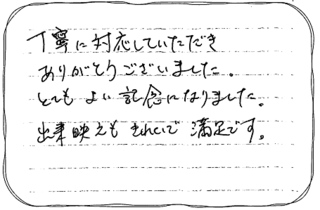 丁寧に対応していただき
ありがとうございました。
とても よい 記念になりました。
出来映えも きれいで 満足です。